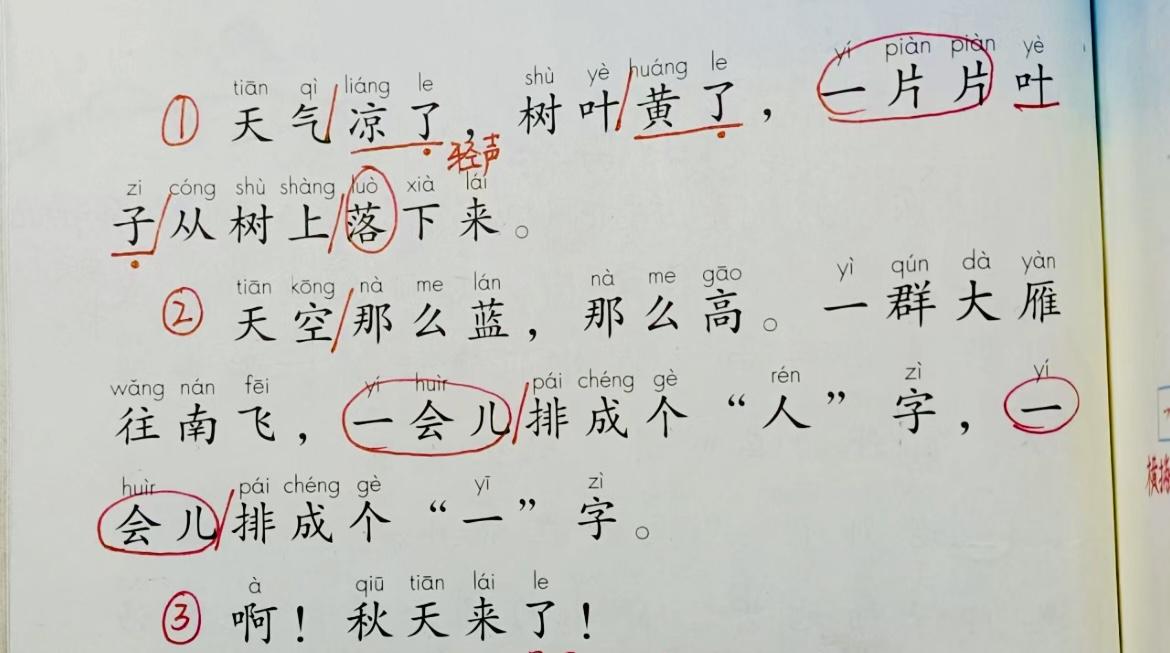 tiān qì liáng le shù yè huáng le yí piàn piàn yè
① 天气凉了，树叶黄了，一片片叶
轻声
zi cóng shù shàng luò xià lái
子从树上落下来。
tiān kōng nà me lán nà me gāo yì qún dà yàn
② 天空那么蓝，那么高。一群大雁
wǎng nán fēi yí huìr pái chéng gè rén zì yí
往南飞，一会儿排成个“人”字，一
huìr pái chéng gè yī zì
会儿排成个“一”字。
à qiū tiān lái le
③ 啊！秋天来了！